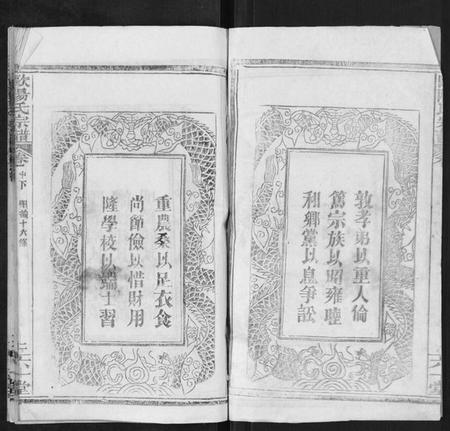 敦孝弟以重人倫
篤宗族以昭雍睦
和鄉黨以息爭訟
重農桑以足衣食
尚節儉以惜財用
隆學校以端士習
歐陽氏宗譜
卷一中下
聖諭十六條